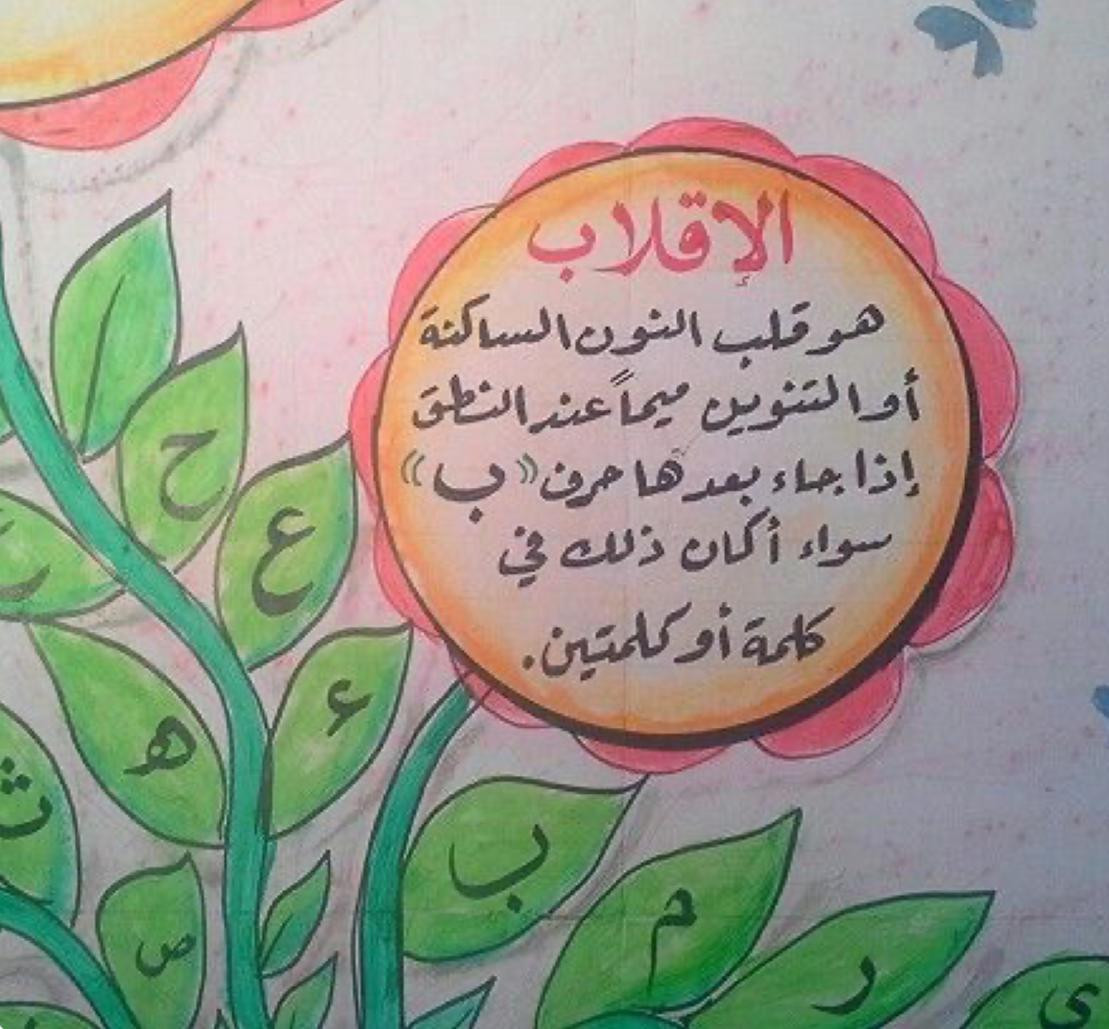 الإقلاب
هو قلب النون الساكنة
أو التنوين ميماً عند النطق
إذا جاء بعدها حرف « ب »
سواء أكان ذلك في
كلمة أو كلمتين.
ح
ع
ء
ه
ث
ص
ب
م
ر
ي